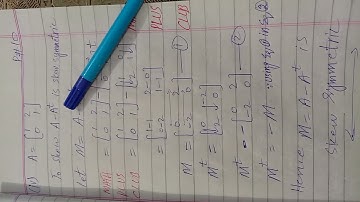 (iv) A = [1 2 0 1]
To show A-Aᵗ is skew symmetric
Let M = A-Aᵗ
= [1 2 0 1] - [1 0 2 1]
= [1-1 2-0 0-2 1-1]
M = [0 2 -2 0] ①
Mᵗ = [0 -2 2 0]
Mᵗ = -[0 2 -2 0] ②
Mᵗ = -M using eq ① in eq 2
Hence M = A-Aᵗ is
Skew Symmetric